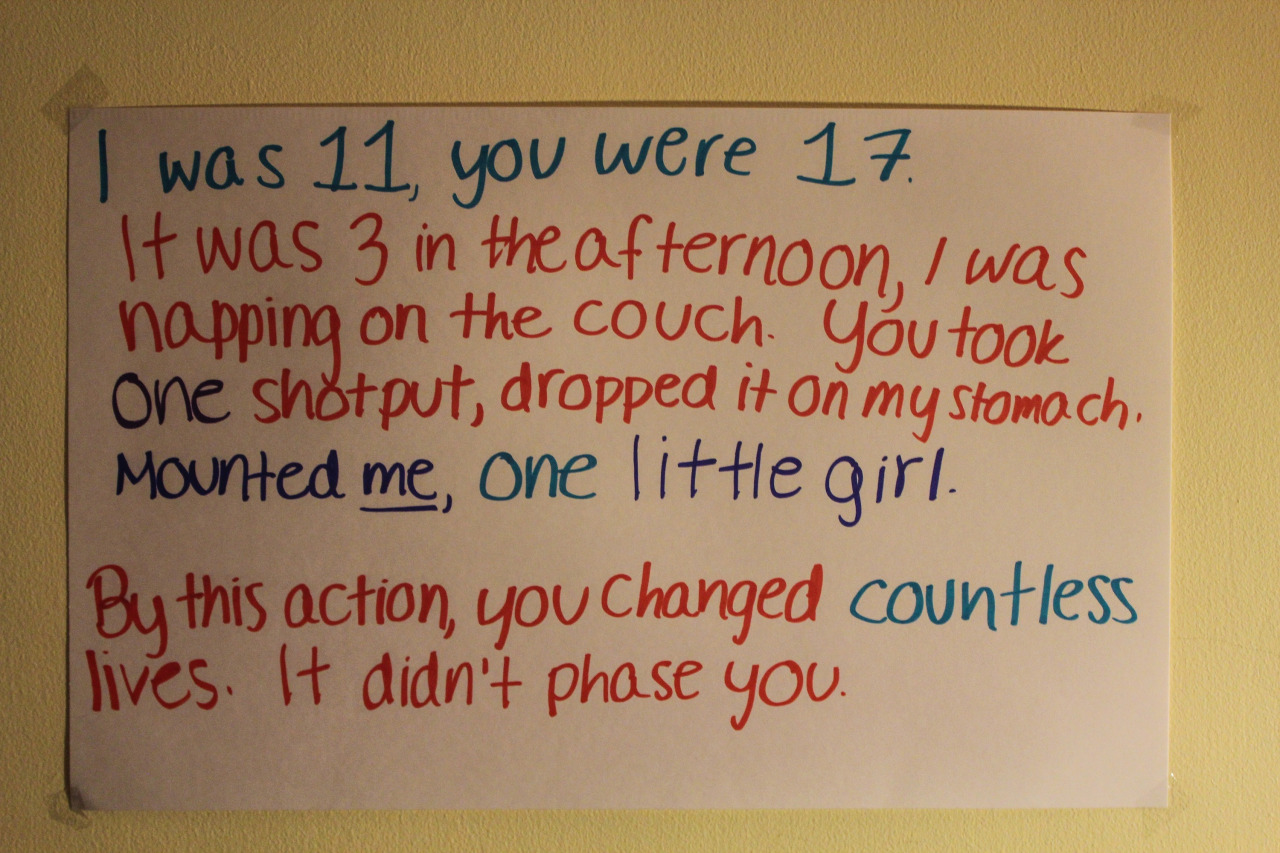 I was 11, you were 17.
It was 3 in the afternoon, I was
napping on the couch. You took
one shotput, dropped it on my stomach.
Mounted me, one little girl.
By this action, you changed countless
lives. It didn't phase you.